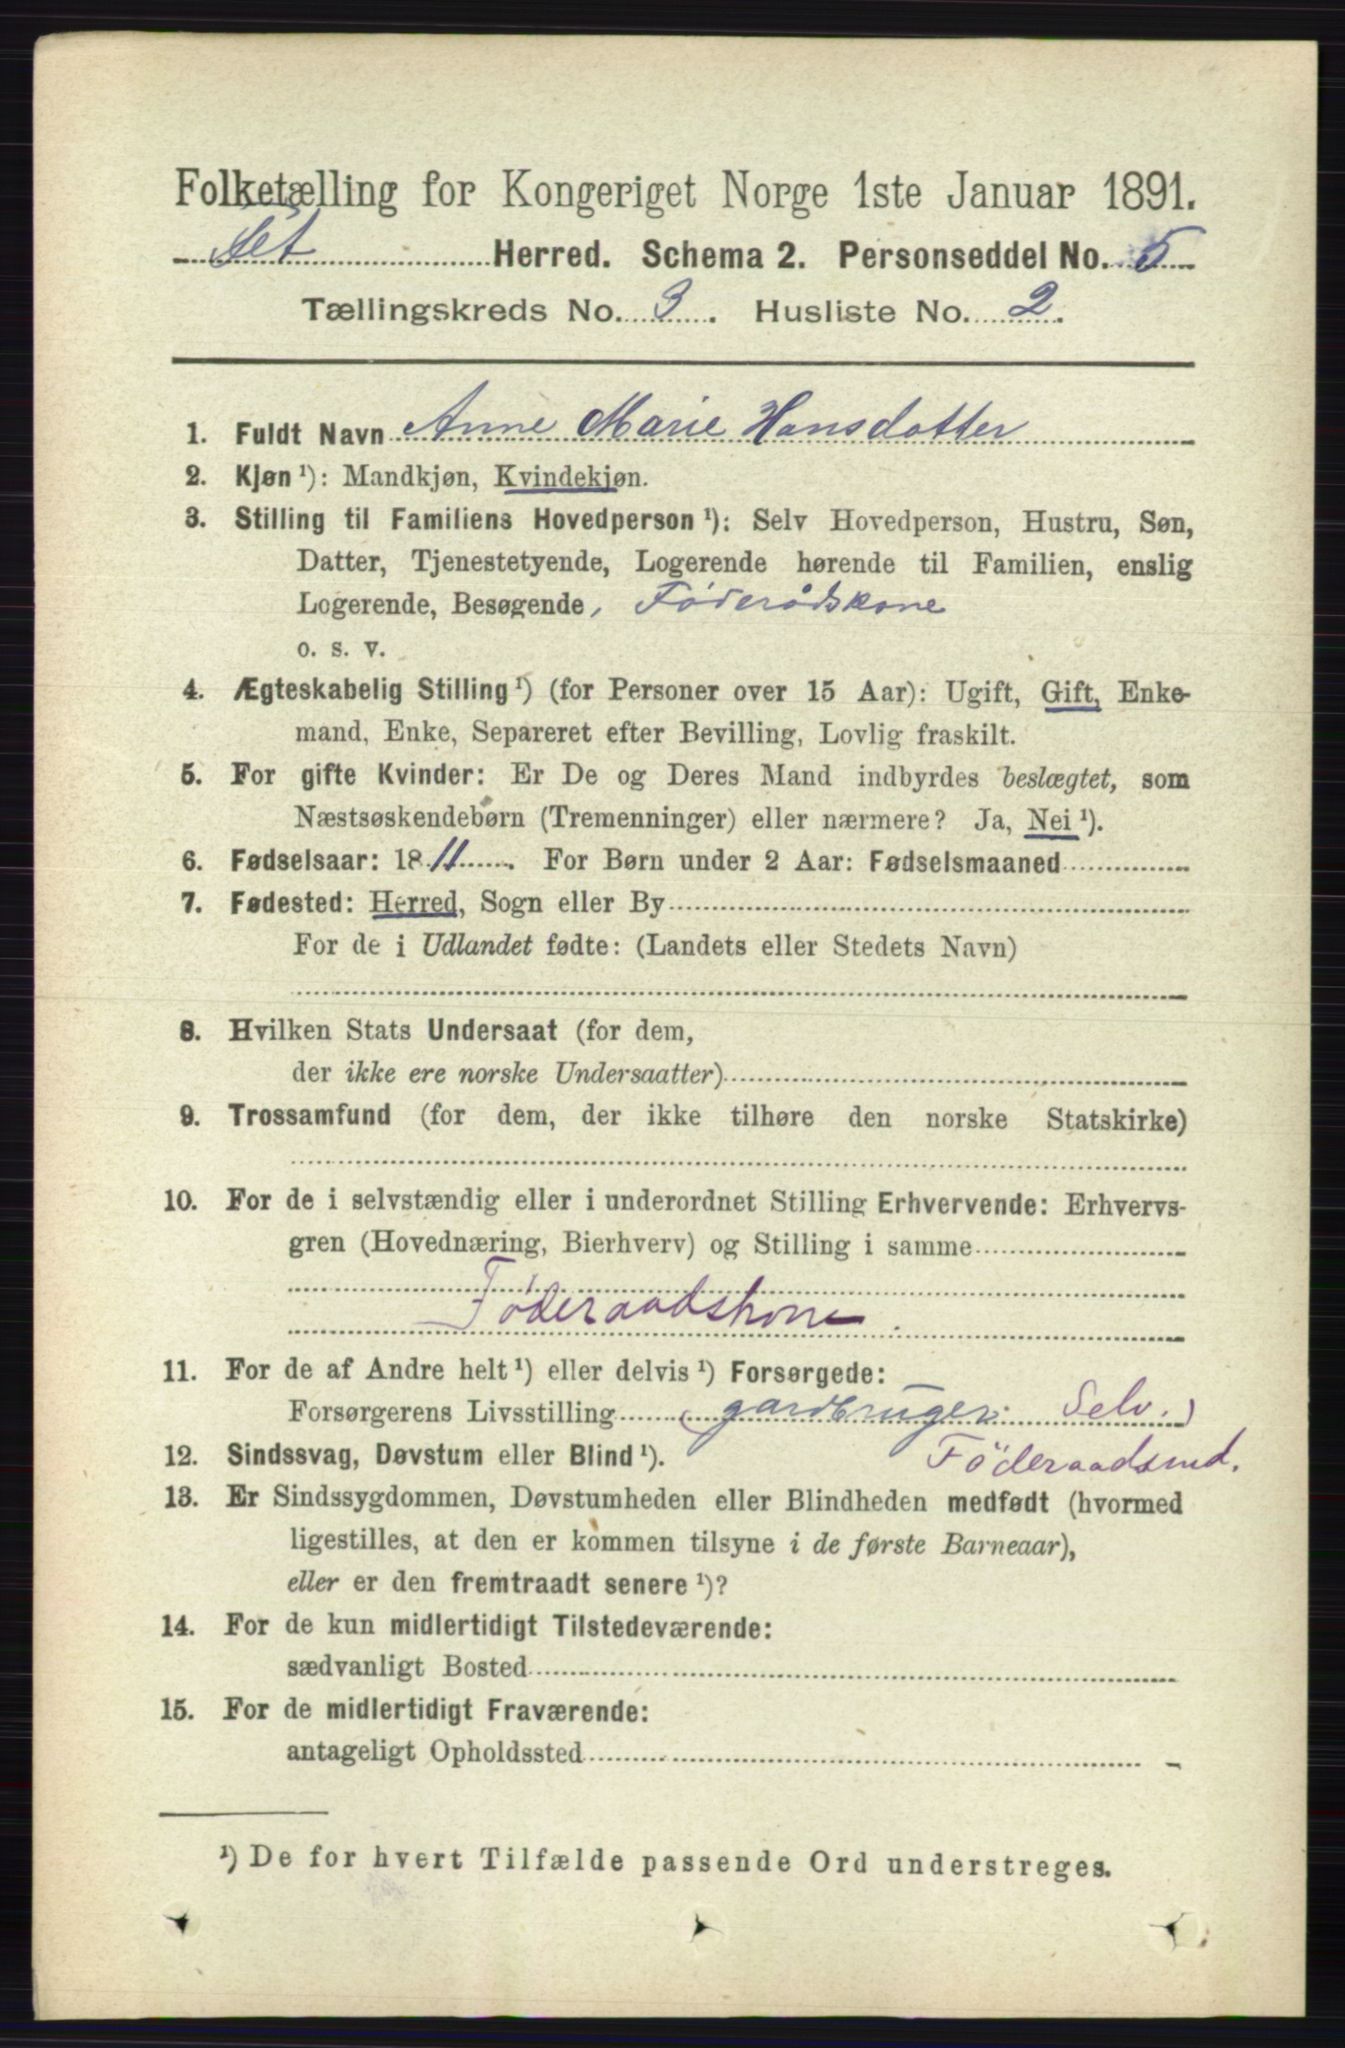 Folketælling for Kongeriget Norge 1ste Januar 1891.
Set Herred. Schema 2. Personseddel No. 5
Tællingskreds No. 3. Husliste No. 2.
1. Fuldt Navn Anne Marie Hansdatter
2. Kjøn ¹): Mandkjøn, Kvindekjøn.
3. Stilling til Familiens Hovedperson ¹): Selv Hovedperson, Hustru, Søn,
Datter, Tjenestetyende, Logerende hørende til Familien, enslig
Logerende, Besøgende, Føderådskone
o. s. v.
4. Ægteskabelig Stilling ¹) (for Personer over 15 Aar): Ugift, Gift, Enke-
mand, Enke, Separeret efter Bevilling, Lovlig fraskilt.
5. For gifte Kvinder: Er De og Deres Mand indbyrdes beslægtet, som
Næstsøskendebørn (Tremenninger) eller nærmere? Ja, Nei ¹).
6. Fødselsaar: 1811. For Børn under 2 Aar: Fødselsmaaned
7. Fødested: Herred, Sogn eller By
For de i Udlandet fødte: (Landets eller Stedets Navn)
8. Hvilken Stats Undersaat (for dem,
der ikke ere norske Undersaatter)
9. Trossamfund (for dem, der ikke tilhøre den norske Statskirke)
10. For de i selvstændig eller i underordnet Stilling Erhvervende: Erhvervs-
gren (Hovednæring, Bierhverv) og Stilling i samme
Føderaadskone.
11. For de af Andre helt ¹) eller delvis ¹) Forsørgede:
Forsørgerens Livsstilling (gardbruger Selv.)
12. Sindssvag, Døvstum eller Blind ¹). Föderaadsmd.
13. Er Sindssygdommen, Døvstumheden eller Blindheden medfødt (hvormed
ligestilles, at den er kommen tilsyne i de første Barneaar),
eller er den fremtraadt senere ¹)?
14. For de kun midlertidigt Tilstedeværende:
sædvanligt Bosted
15. For de midlertidigt Fraværende:
antageligt Opholdssted
¹) De for hvert Tilfælde passende Ord understreges.